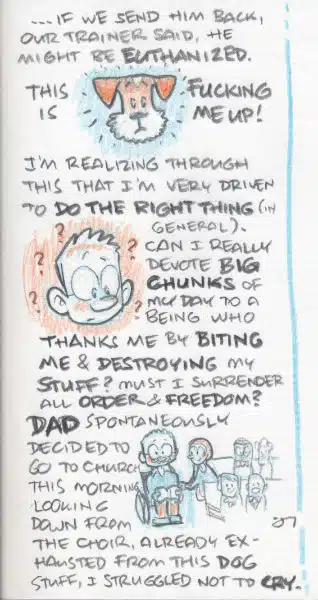 ...IF WE SEND HIM BACK,
OUR TRAINER SAID, HE
MIGHT BE EUTHANIZED.
THIS IS
FUCKING ME UP!
I'M REALIZING THROUGH
THIS THAT I'M VERY DRIVEN
TO DO THE RIGHT THING (IN
GENERAL).
? ? ? ?
CAN I REALLY
DEVOTE BIG
CHUNKS OF
MY DAY TO A
BEING WHO
THANKS ME BY BITING
ME & DESTROYING MY
STUFF? MUST I SURRENDER
ALL ORDER & FREEDOM?
DAD SPONTANEOUSLY
DECIDED TO
GO TO CHURCH
THIS MORNING
LOOKING
DOWN FROM
THE CHOIR, ALREADY EX-
HAUSTED FROM THIS DOG
STUFF, I STRUGGLED NOT TO CRY.